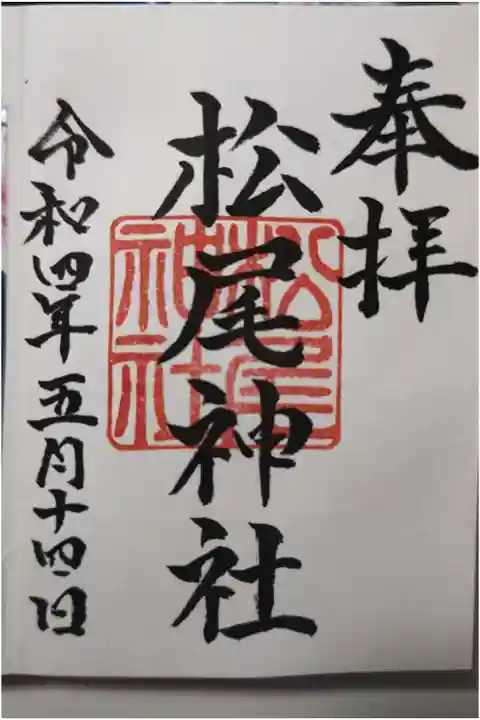 奉拝
松尾神社
松尾神社
令和四年五月十四日